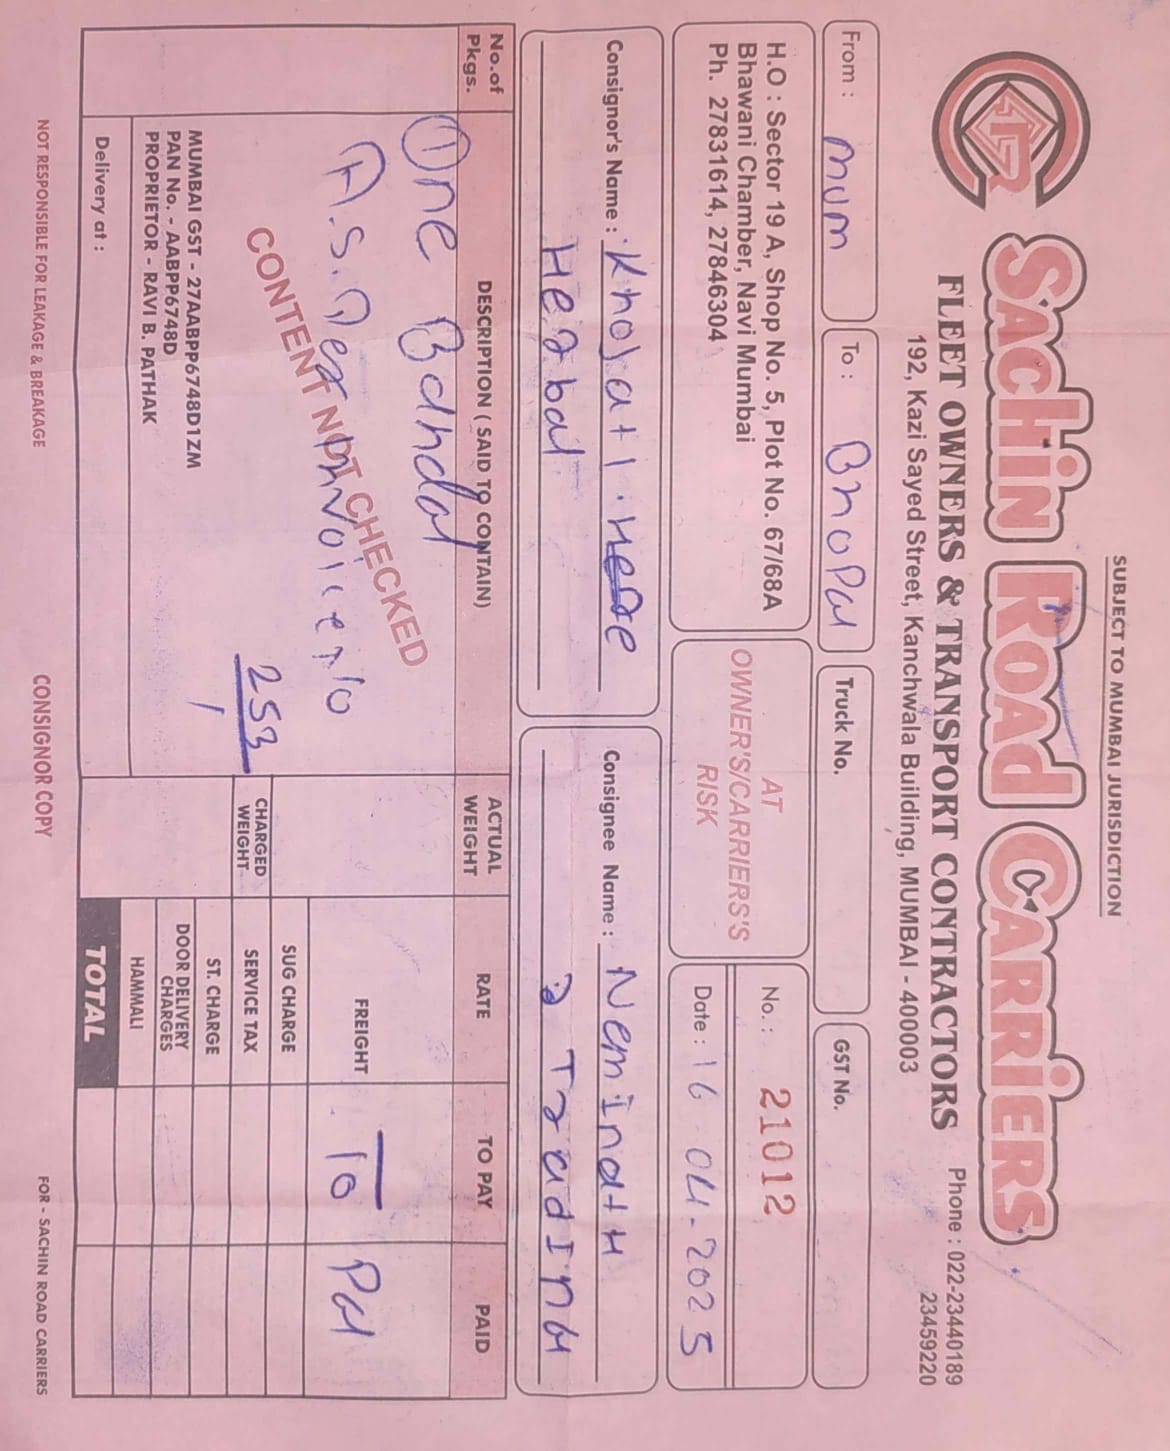 SUBJECT TO MUMBAI JURISDICTION
Sachin Road Carriers
FLEET OWNERS & TRANSPORT CONTRACTORS
192, Kazi Sayed Street, Kanchwala Building, MUMBAI - 400003
Phone : 022-23440189
23459220
From : mum
To : BhoPal
Truck No.
GST No.
H.O : Sector 19 A, Shop No. 5, Plot No. 67/68A
Bhawani Chamber, Navi Mumbai
Ph. 27831614, 27846304
AT
OWNER'S/CARRIERS'S
RISK
No. : 21012
Date : 16 04-2025
Consignor's Name :
Herbal
Consignee Name : NemInatH
TradIng
No.of
Pkgs.
DESCRIPTION ( SAID TO CONTAIN)
ACTUAL
WEIGHT
RATE
TO PAY
PAID
① One Bandal
A.S. Per Invoice no
253
CONTENT NOT CHECKED
FREIGHT
To Pay
SUG CHARGE
CHARGED
WEIGHT
SERVICE TAX
ST. CHARGE
DOOR DELIVERY
CHARGES
HAMMALI
TOTAL
MUMBAI GST - 27AABPP6748D1ZM
PAN No. - AABPP6748D
PROPRIETOR - RAVI B. PATHAK
Delivery at :
NOT RESPONSIBLE FOR LEAKAGE & BREAKAGE
CONSIGNOR COPY
FOR - SACHIN ROAD CARRIERS